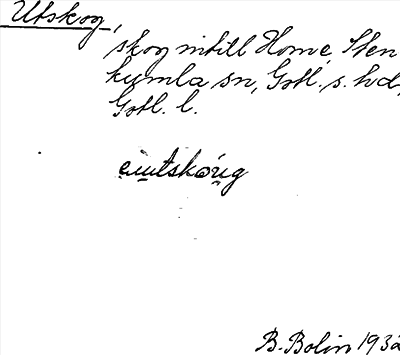 Utskog,
skog intill Home, Sten
kymla sn, Gotl. s. hd,
Gotl. l.
eu̯tskóu̯g
B. Bolin 1932